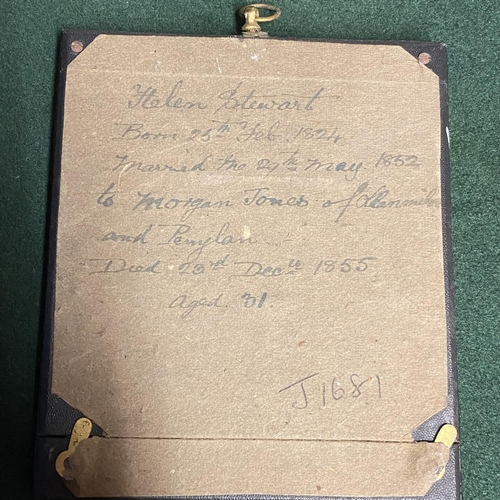 Helen Stewart
Born 25th Feb. 1824
Married the 27th May 1852
to Morgan Jones of
and Penylan
Died 23rd Decr 1855
Aged 31.
J1681